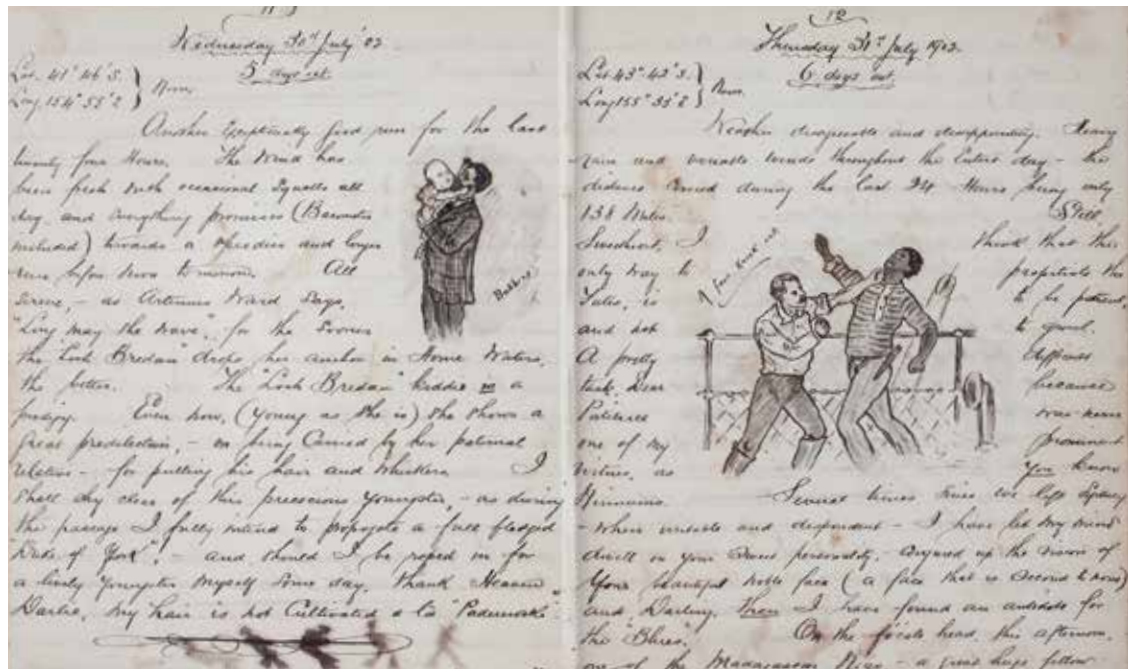 11
Wednesday 30th July '02
5 days out
Lat. 41° 46' S.
Long. 154° 55' E
Noon.
Another exceptionally good run for the last
twenty four Hours. The Wind has
been fresh with occasional Squalls all
day, and everything promises (Barometer
included) towards a speedier and longer
run before noon tomorrow. All
serene, - as Artemus Ward Says,
"Long may she wave", for the sooner
the "Loch Bredan" drops her anchor in Home Waters,
the better. The "Loch Bredan" kiddie is a
prodigy. Even now, (young as she is) she shows a
great predilection, - on being Carried by her paternal
relative - for pulling his hair and whiskers I
shall shy clear of this precocious youngster, - as during
the passage I fully intend to propogate a full fledged
"Duke of York"! - and should I be roped in for
a lusty youngster myself some day, thank Heaven
Darlie, my hair is not Cultivated a la "Paderewski".
12
Thursday 31st July 1902.
6 days out.
Lat. 43° 43' S.
Long 155° 35' E
Noon.
Weather disagreeable and disappointing. Heavy
rain and variable winds throughout the Entire day - the
distance covered during the last 24 Hours being only
138 Miles. Still
Sweetheart, I think that the
only way to propitiate the
Fates, is to be patient,
and not to growl.
A pretty difficult
task, Dear because
Patience was never
one of my prominent
virtues, as you know
Several times since we left Sydney
- when unstable and despondent - I have let my mind
dwell on your sweet personality, - conjured up the vision of
Your beautiful noble face (a face that is second to none)
and Darling, then I have found an antidote for
the "Blues". On the fo'c'sle head, this afternoon,
one of the Madagascar - a great huge fellow